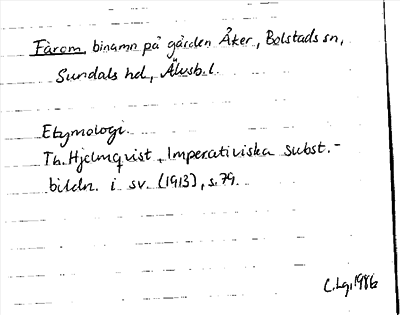 Fårom, binamn på gården Åker, Bolstads sn,
Sundals hd, Älvsb.l.
Etymologi:
Th. Hjelmqvist, Imperativiska subst.-
bildn. i sv. (1913), s.79.
C.Lg.1986